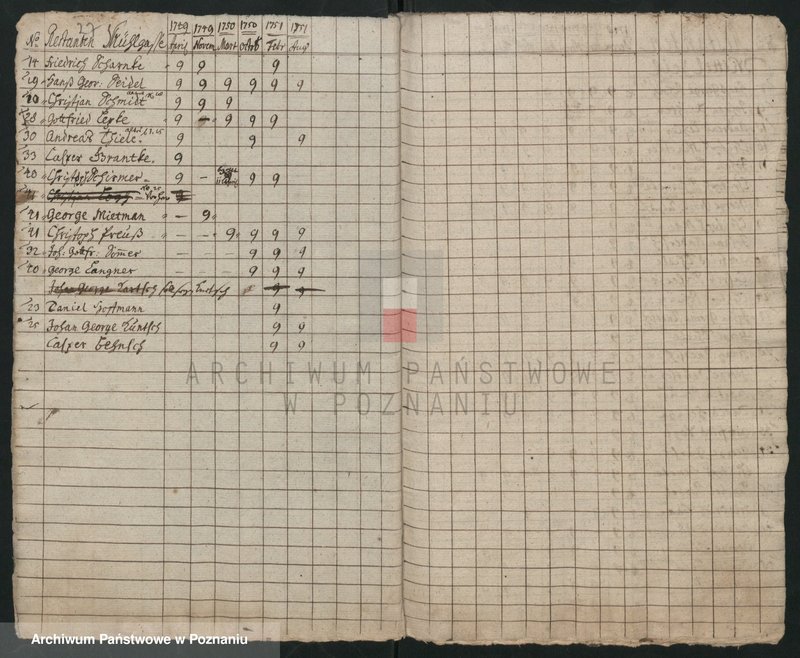 27
1749 1749 1750 1750 1751 1751
No. Restanten Mühlgasse April Novem Mart Octb Febr Aug
14 Friedrich Scharnke 9 9 9
19 Hanß Geor: Seidel 9 9 9 9 9 9
20 Christian Schmidt 9 9 9
28 Gottfried Lepke 9 – 9 9 9
30 Andreas Thiele. 9 9 9
33 Casper Brantke. 9
40 Christoph Schirmer 9 – 9 9
41 Christian
41 George Mietman – 9
21 Christoph Preuß – – 9 9 9 9
32 Joh: Gottfr: – – – 9 9 9
40 George Langner – – – 9 9 9
Johan George 9 9
23 Daniel Hoffmann 9
25 Johan George Küntsch 9 9
Casper 9 9
ARCHIWUM PAŃSTWOWE
W POZNANIU
Archiwum Państwowe w Poznaniu